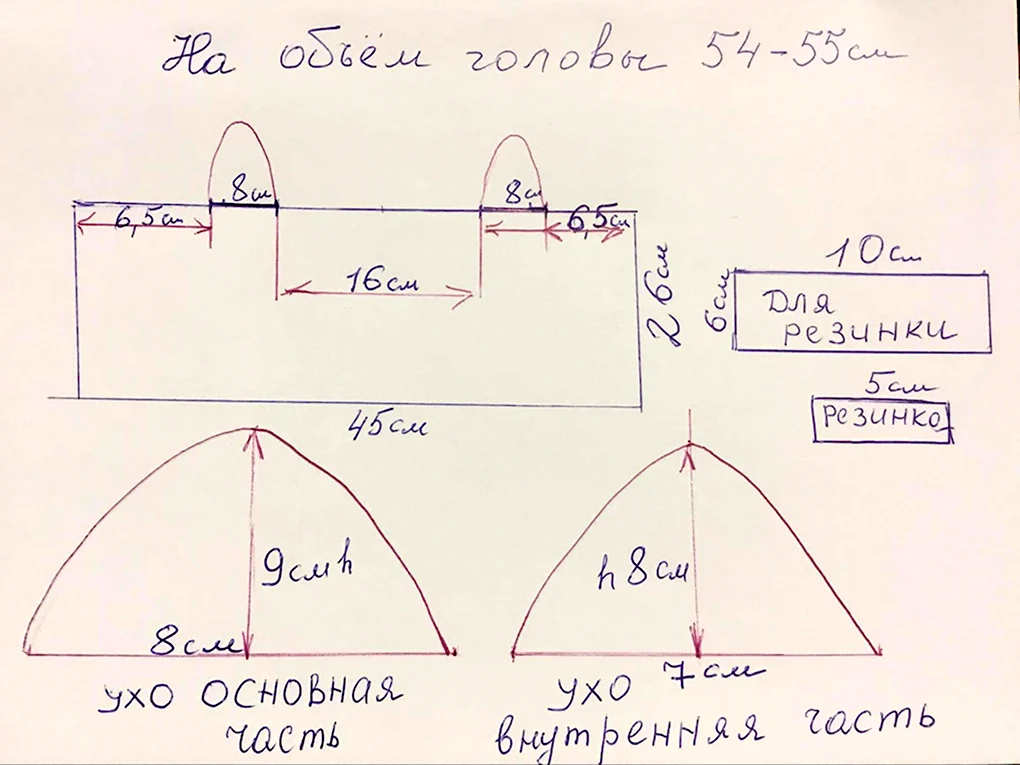 На объём головы 54-55см
8см
8см
6,5см
6,5см
16см
26см
45см
10см
6см
Для
резинки
5см
Резинка
9см h
8см
h 8см
7см
ухо основная
часть
ухо
внутренняя часть